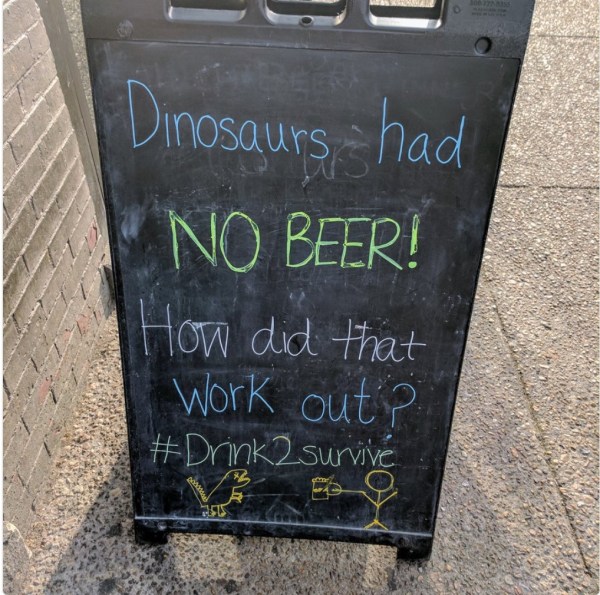 Dinosaurs had
NO BEER!
How did that
Work out?
#Drink2survive